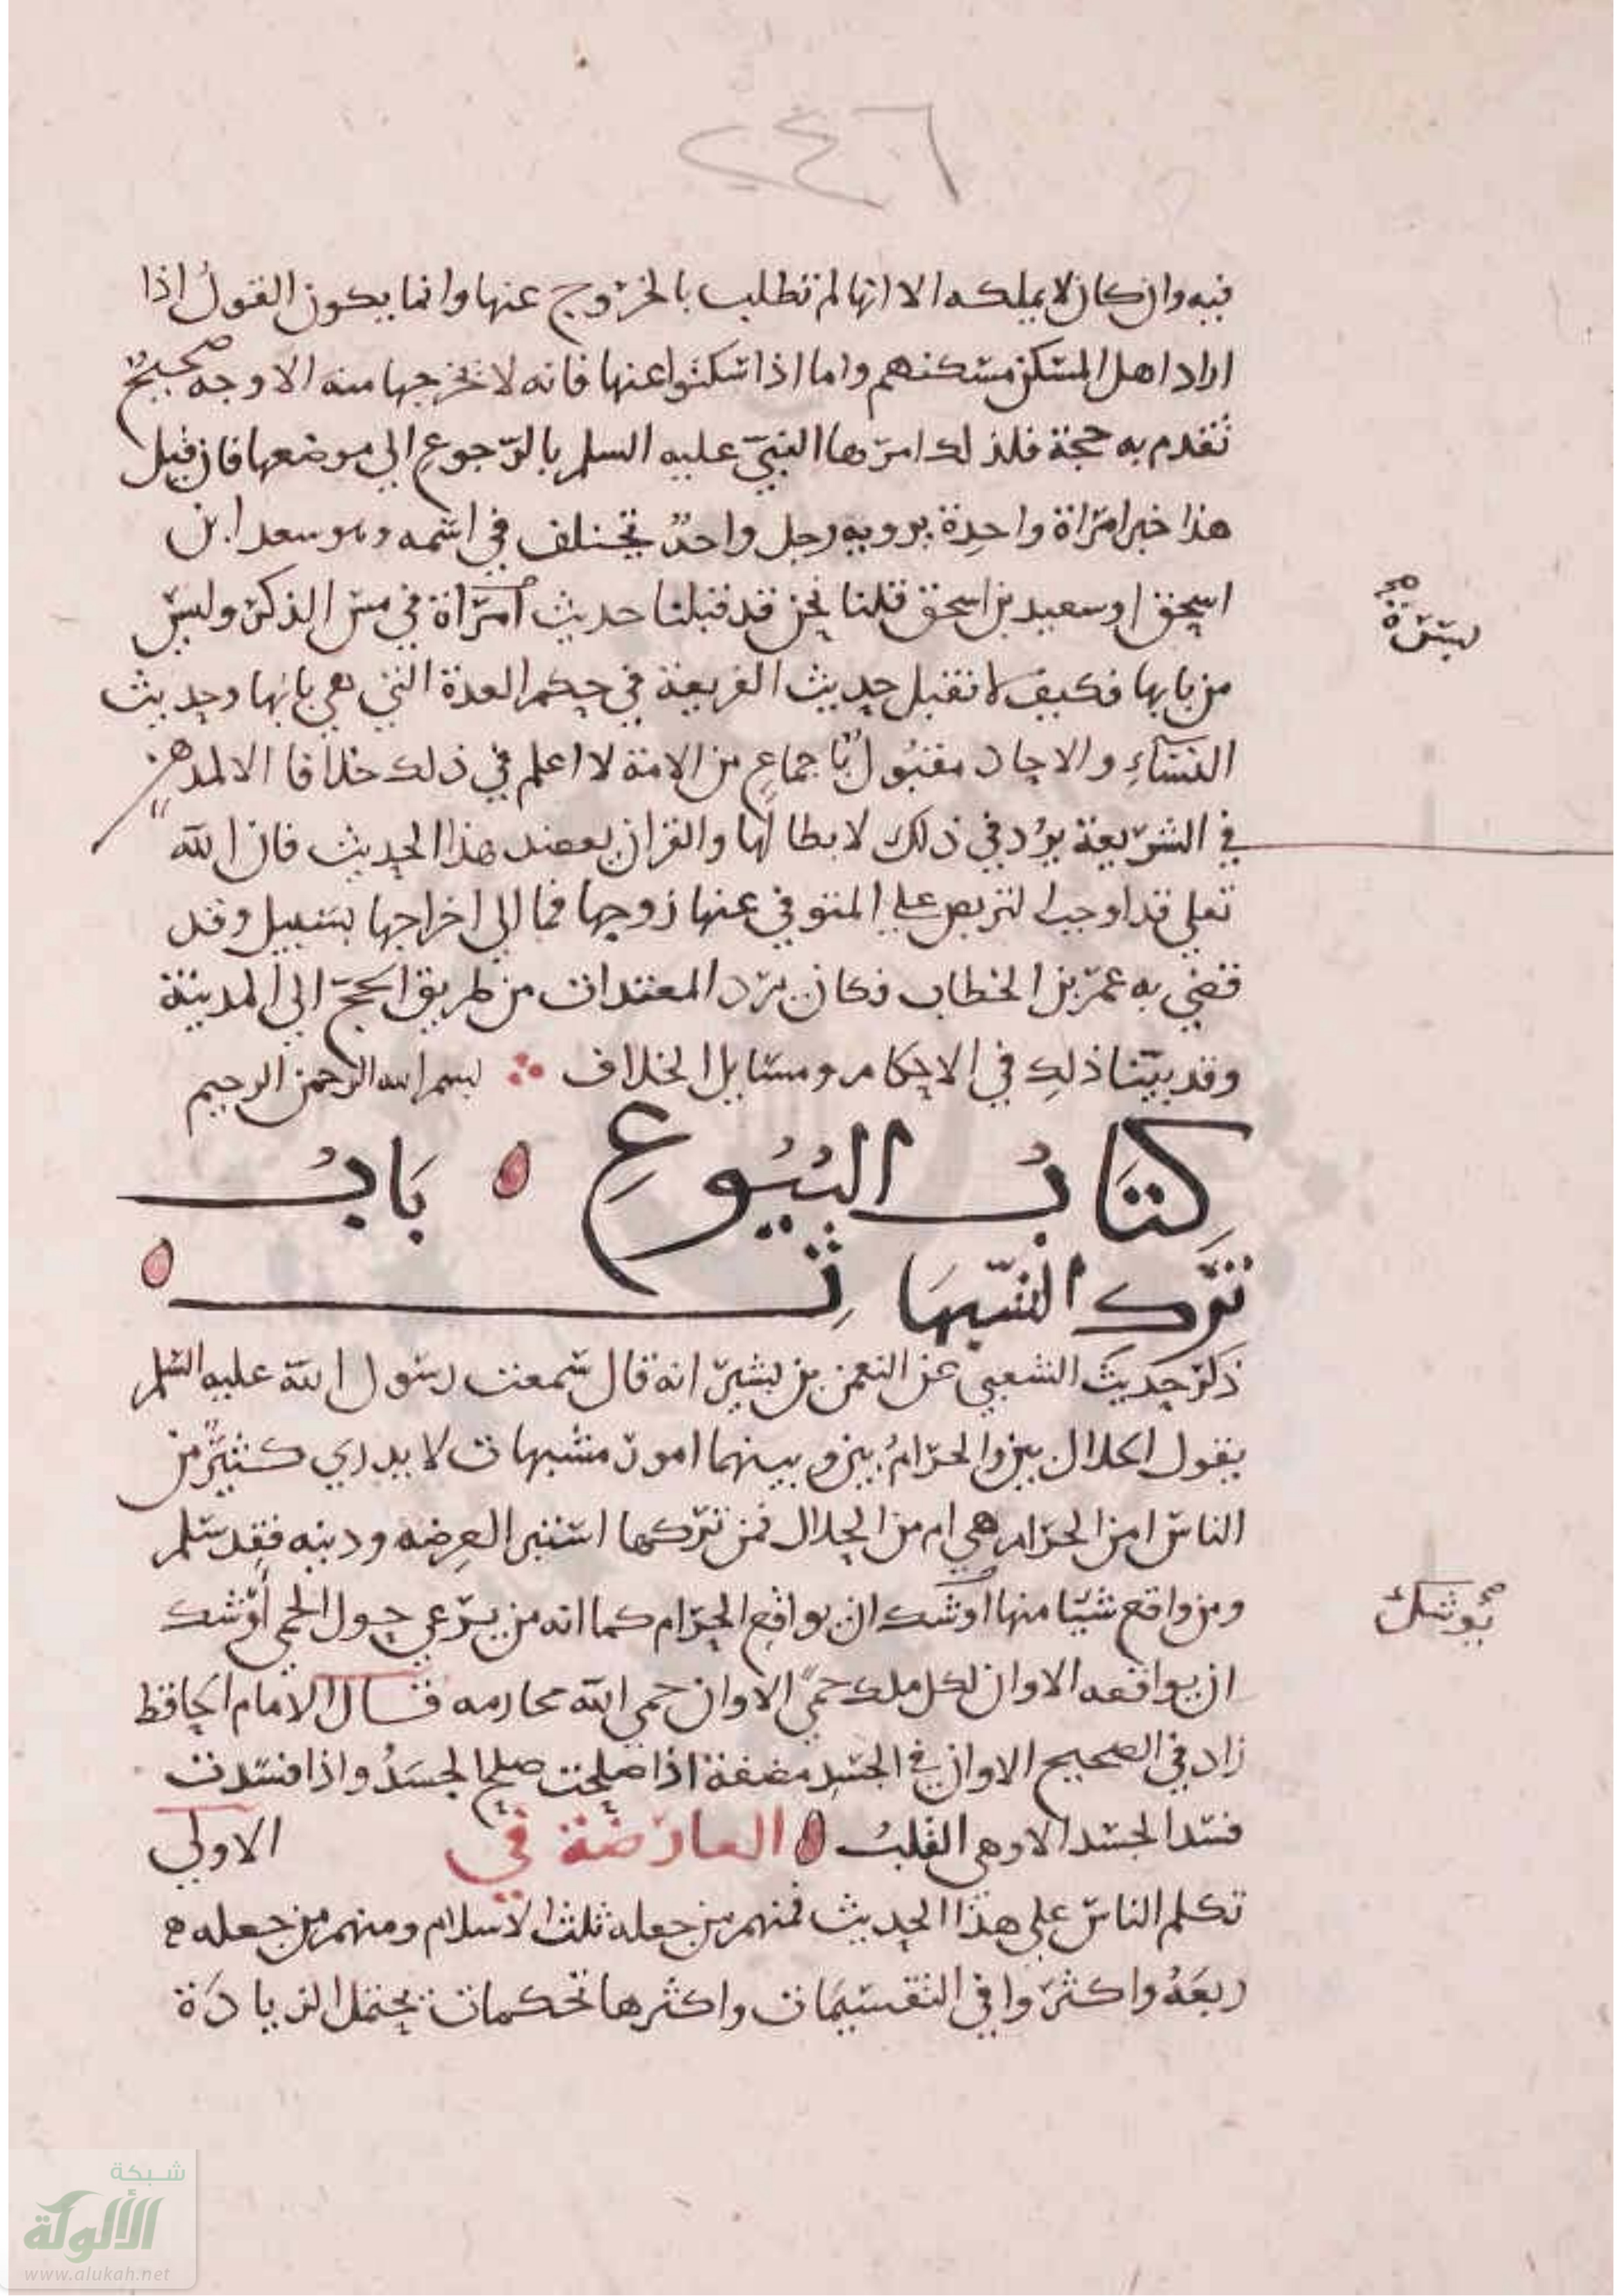 ٢٤٦
فيه وان كان لا يملكه الا انها لم تطلب بالخروج عنها وانما يكون القول اذا
اراد اهل المسكن مسكنهم واما اذا سكتوا عنها فانه لا يخرجها منه الا وجه صحيح
تقدم به حجة فلذلك امرها النبي عليه السلم بالرجوع الى موضعها فان قيل
هذا خبر امراة واحدة يرويه رجل واحد يختلف في اسمه وهو سعد ابن
اسحق او سعيد بن اسحق قلنا نحن قد قبلنا حديث امراة في مس الذكر وليس
بسرة
من بابها فكيف لا نقبل حديث الفريعة في حكم العدة التي هي بابها وحديث
النساء والاحاد مقبول باجماع من الامة لا اعلم في ذلك خلافا الا لمدهن
في الشريعة يرد في ذلك لابطالها والقران يعضد هذا الحديث فان الله
تعلى قد اوجب التربص على المتوفى عنها زوجها فما الى اخراجها سبيل وقد
قضى به عمر بن الخطاب فكان يرد المعتدات من طريق الحج الى المدينة
وقد بينا ذلك في الاحكام ومسايل الخلاف بسم الله الرحمن الرحيم
كتاب البيوع باب
ترك الشبهات
ذكر حديث الشعبي عن النعمن بن بشير انه قال سمعت رسول الله عليه السلم
يقول الحلال بين والحرام بين وبينهما امور مشبهات لا يدري كثير من
الناس امن الحرام هي ام من الحلال فمن تركها استبرا لعرضه ودينه فقد سلم
ومن واقع شيا منها اوشك ان يواقع الحرام كما انه من يرعى حول الحمى اوشك
يوشك
ان يواقعه الا وان لكل ملك حمى الا وان حمى الله محارمه قال الامام الحافظ
زاد في الصحيح الا وان في الجسد مضغة اذا صلحت صلح الجسد واذا فسدت
فسد الجسد الا وهي القلب العارضة في الاولى
تكلم الناس على هذا الحديث فمنهم من جعله ثلث الاسلام ومنهم من جعله
ربعه واكثروا في التقسيمات واكثرها تحكمات تحتمل الزيادة
شبكة
الألوكة
www.alukah.net